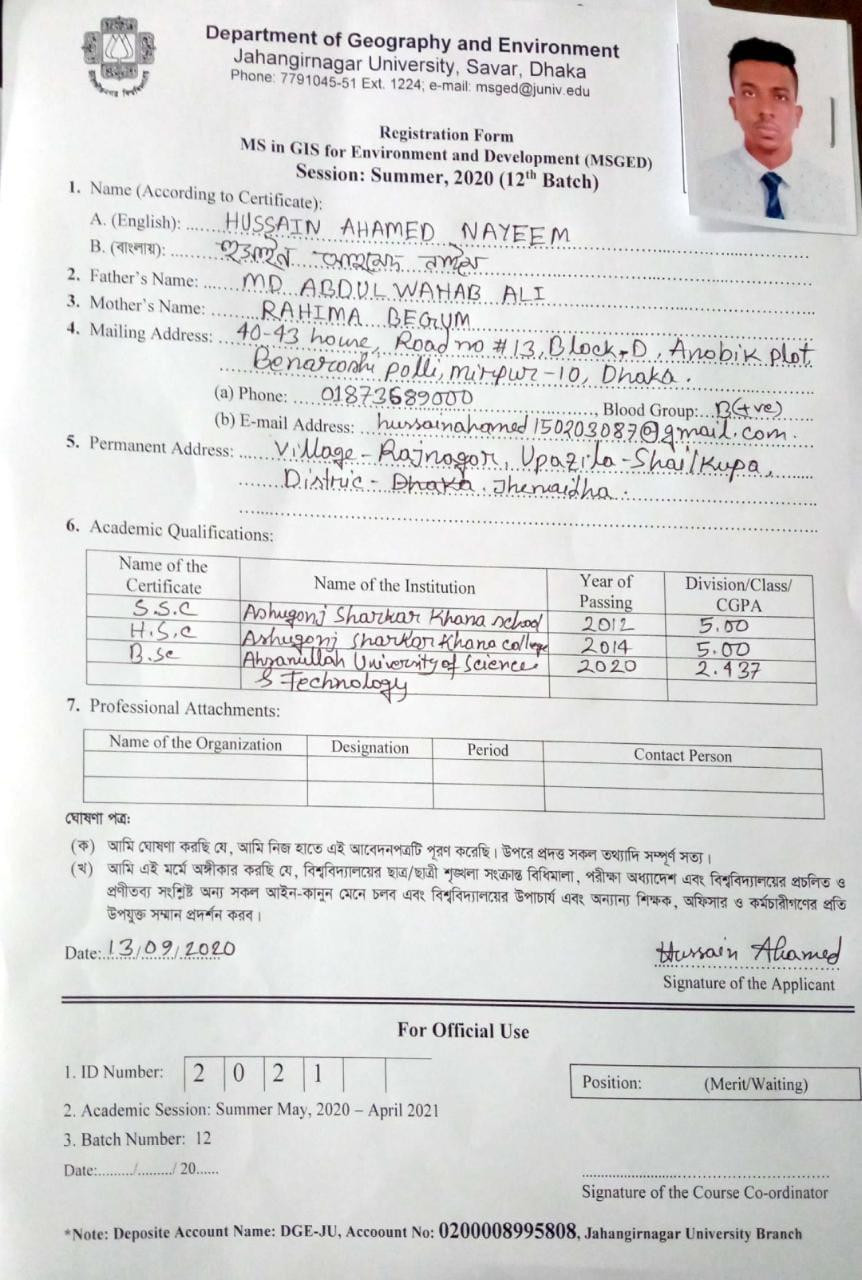 Department of Geography and Environment
Jahangirnagar University, Savar, Dhaka
Phone: 7791045-51 Ext. 1224; e-mail: msged@juniv.edu
Registration Form
MS in GIS for Environment and Development (MSGED)
Session: Summer, 2020 (12th Batch)
1. Name (According to Certificate):
A. (English): HUSSAIN AHAMED NAYEEM
B. (বাংলায়): হুসাইন আহমেদ নাঈম
2. Father's Name: MD ABDUL WAHAB ALI
3. Mother's Name: RAHIMA BEGUM
4. Mailing Address: 40-43 house, Road no #13, Block-D, Anobik plot
Benaroshi polli, mirpur-10, Dhaka.
(a) Phone: 01873689000, Blood Group: B(+ve)
(b) E-mail Address: hussainahamed150203087@gmail.com.
5. Permanent Address: Village-Rajnagor, Upazila-Shailkupa,
Distric- Dhaka. Jhenaidha.
6. Academic Qualifications:
Name of the Certificate Name of the Institution Year of Passing Division/Class/CGPA
S.S.C Ashugonj Sharkar Khana school 2012 5.00
H.S.C Ashugonj Sharkar Khana college 2014 5.00
B.Sc Ahsanullah University of Science 2020 2.937
& Technology
7. Professional Attachments:
Name of the Organization Designation Period Contact Person
ঘোষণা পত্র:
(ক) আমি ঘোষণা করছি যে, আমি নিজ হাতে এই আবেদনপত্রটি পূরণ করেছি। উপরে প্রদত্ত সকল তথ্যাদি সম্পূর্ণ সত্য।
(খ) আমি এই মর্মে অঙ্গীকার করছি যে, বিশ্ববিদ্যালয়ের ছাত্র/ছাত্রী শৃঙ্খলা সংক্রান্ত বিধিমালা, পরীক্ষা অধ্যাদেশ এবং বিশ্ববিদ্যালয়ের প্রচলিত ও
প্রণীতব্য সংশ্লিষ্ট অন্য সকল আইন-কানুন মেনে চলব এবং বিশ্ববিদ্যালয়ের উপাচার্য এবং অন্যান্য শিক্ষক, অফিসার ও কর্মচারীগণের প্রতি
উপযুক্ত সম্মান প্রদর্শন করব।
Date: 13/09/2020 Hussain Ahamed
Signature of the Applicant
For Official Use
1. ID Number: 2 0 2 1 Position: (Merit/Waiting)
2. Academic Session: Summer May, 2020 – April 2021
3. Batch Number: 12
Date:........./........./ 20......
Signature of the Course Co-ordinator
*Note: Deposite Account Name: DGE-JU, Accoount No: 0200008995808, Jahangirnagar University Branch